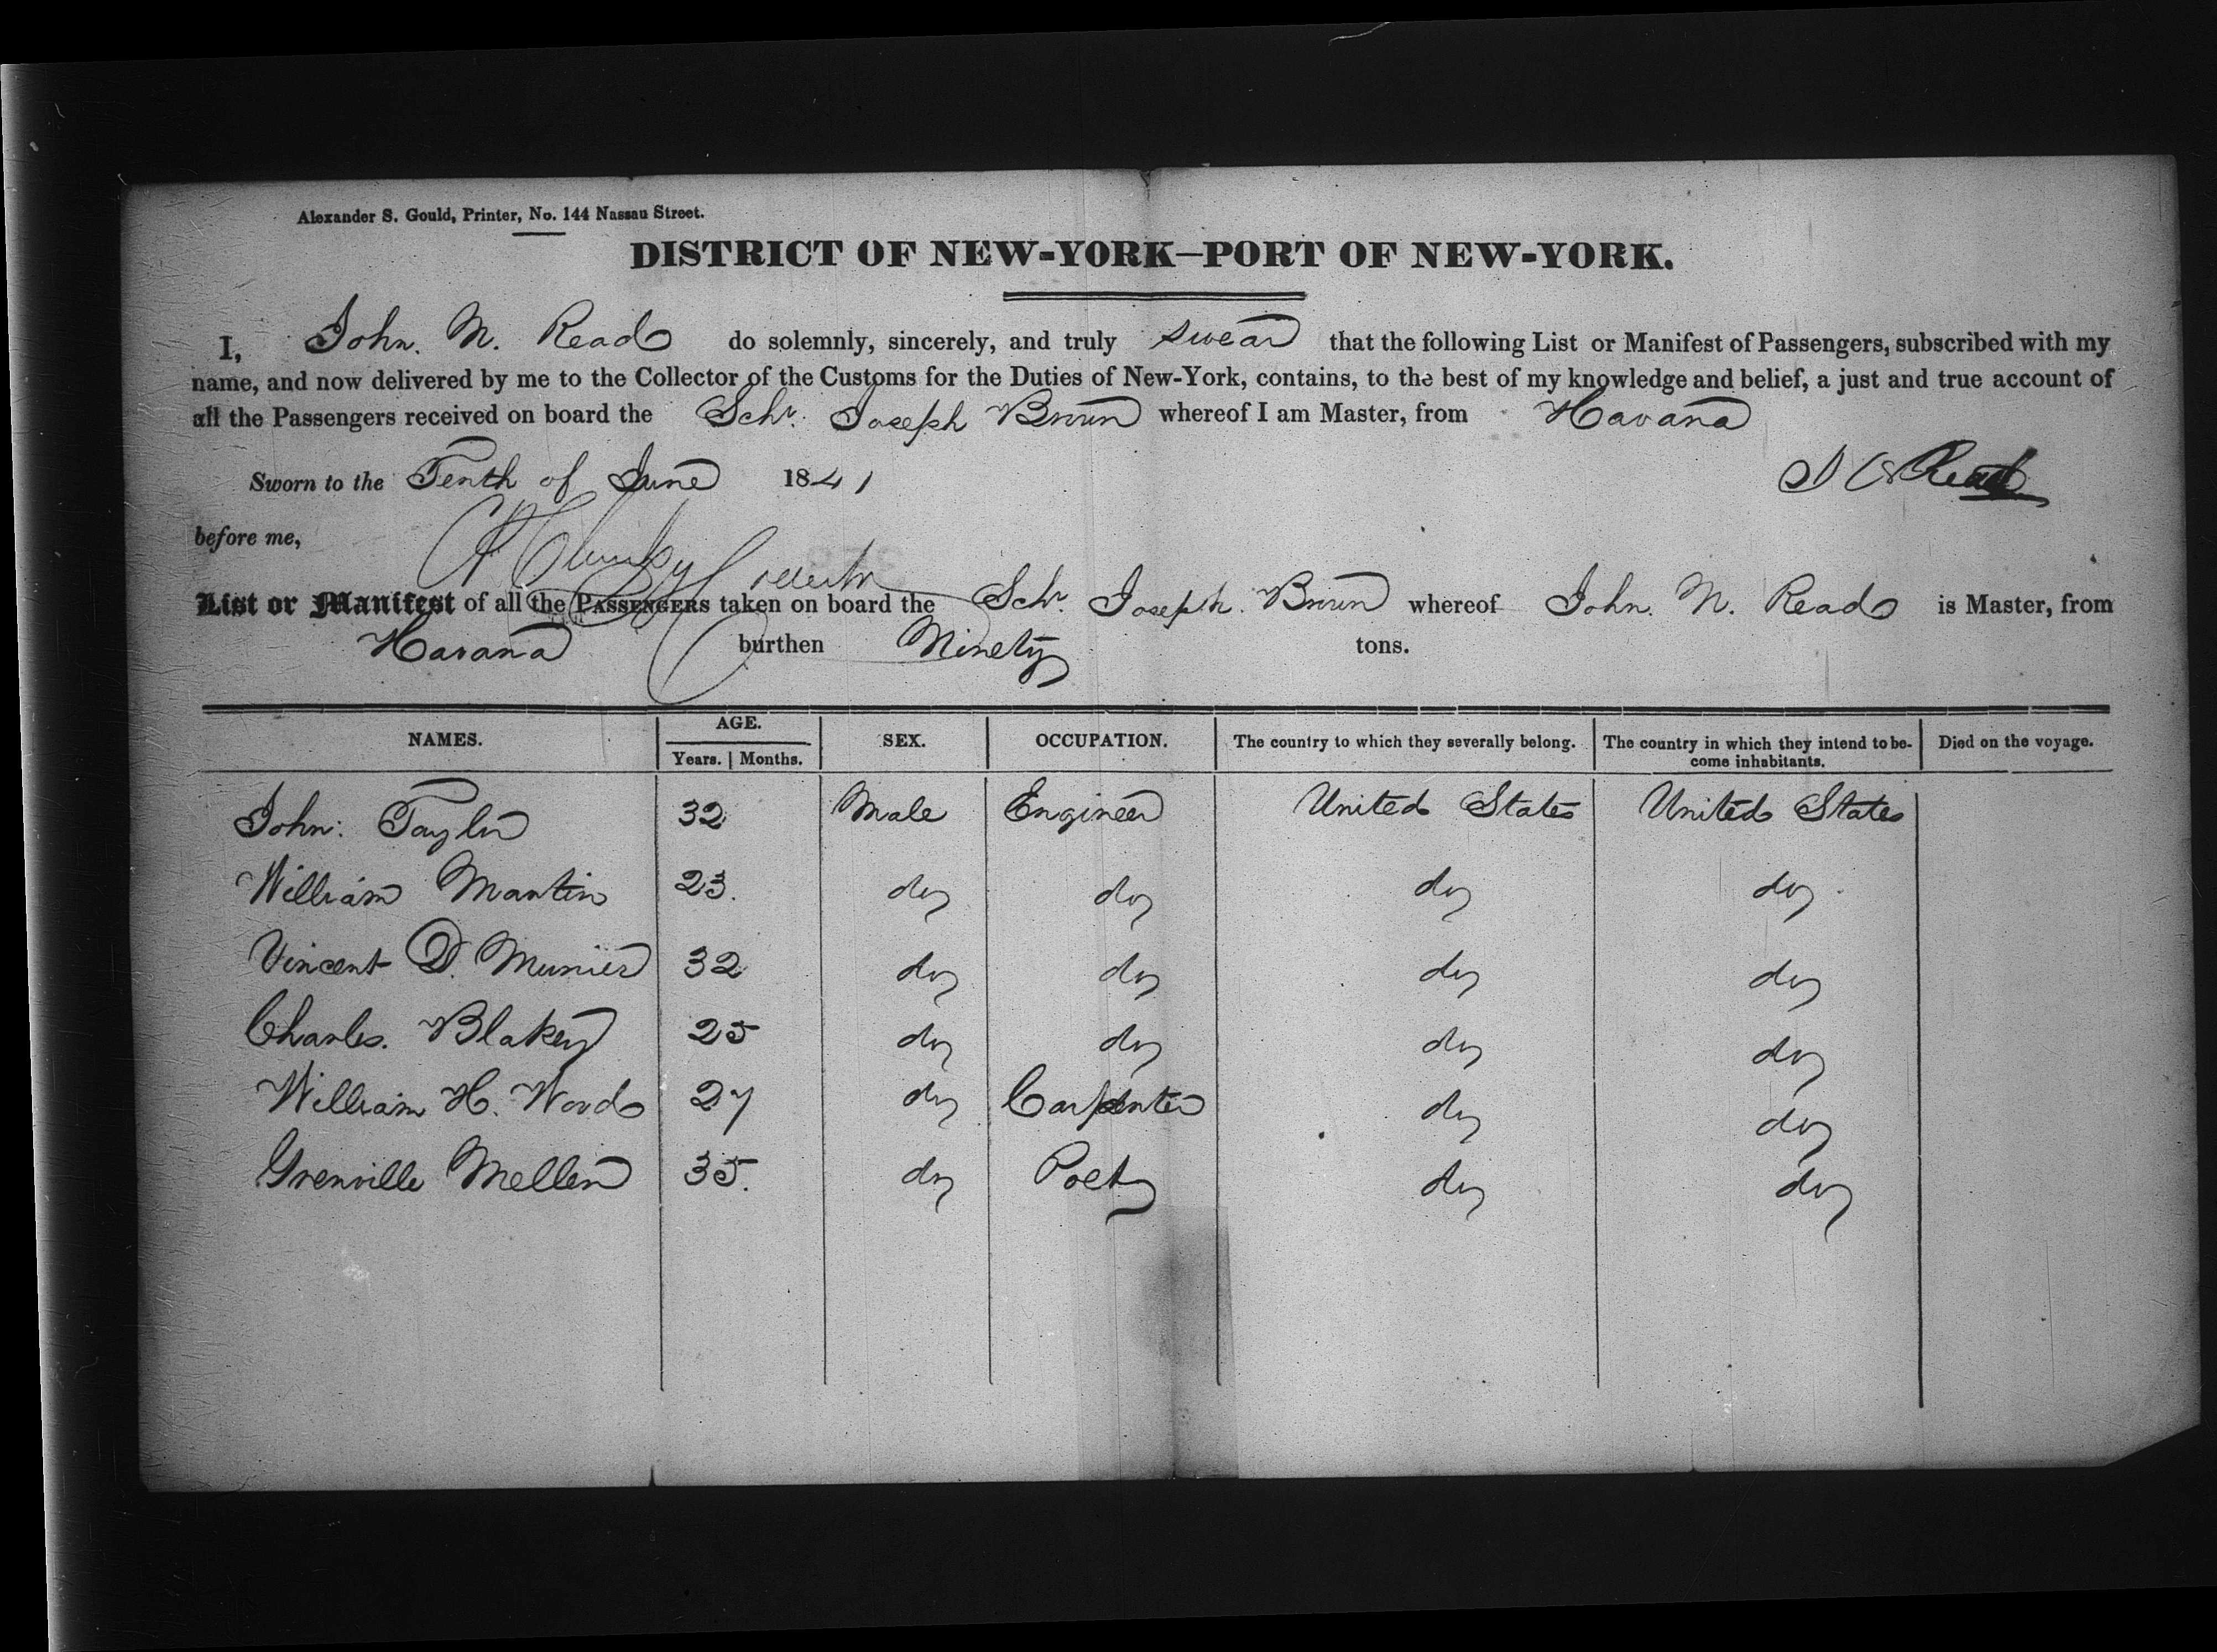 Alexander S. Gould, Printer, No. 144 Nassau Street.
DISTRICT OF NEW-YORK—PORT OF NEW-YORK.
I, John. N. Read do solemnly, sincerely, and truly swear that the following List or Manifest of Passengers, subscribed with my
name, and now delivered by me to the Collector of the Customs for the Duties of New-York, contains, to the best of my knowledge and belief, a just and true account of
all the Passengers received on board the Schr. Joseph Brown whereof I am Master, from Havana
Sworn to the Tenth of June 1841
Read
before me,
List or Manifest of all the PASSENGERS taken on board the Schr. Joseph. Brown whereof John. N. Read is Master, from
Havana burthen Ninety tons.
NAMES. AGE. SEX. OCCUPATION. The country to which they severally belong. The country in which they intend to be- Died on the voyage.
Years. Months. come inhabitants.
John: Taylor 32 Male Engineer United States United States
William Martin 23. do do do do
Vincent D. Munier 32 do do do do
Charles. Blakey 25 do do do do
William H. Wood 27 do Carpenter do do
Grenville Mellen 35. do Poet do do